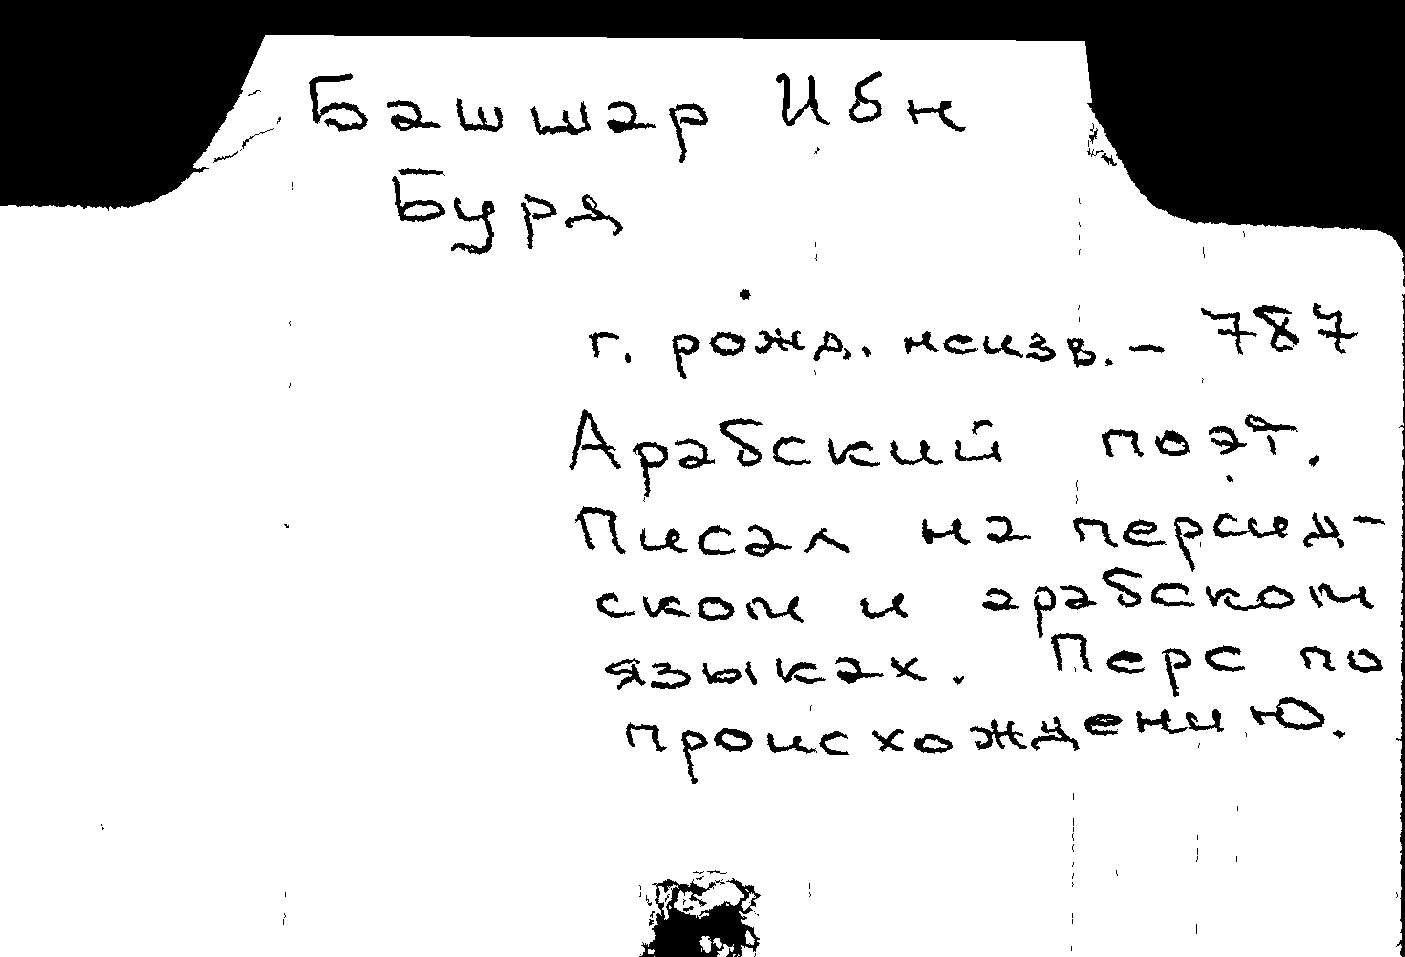 Башшар Ибн
Бурд
г. рожд. неизв. – 787
Арабский поэт.
Писал на персид-
ском и арабском
языках. Перс по
происхождению.